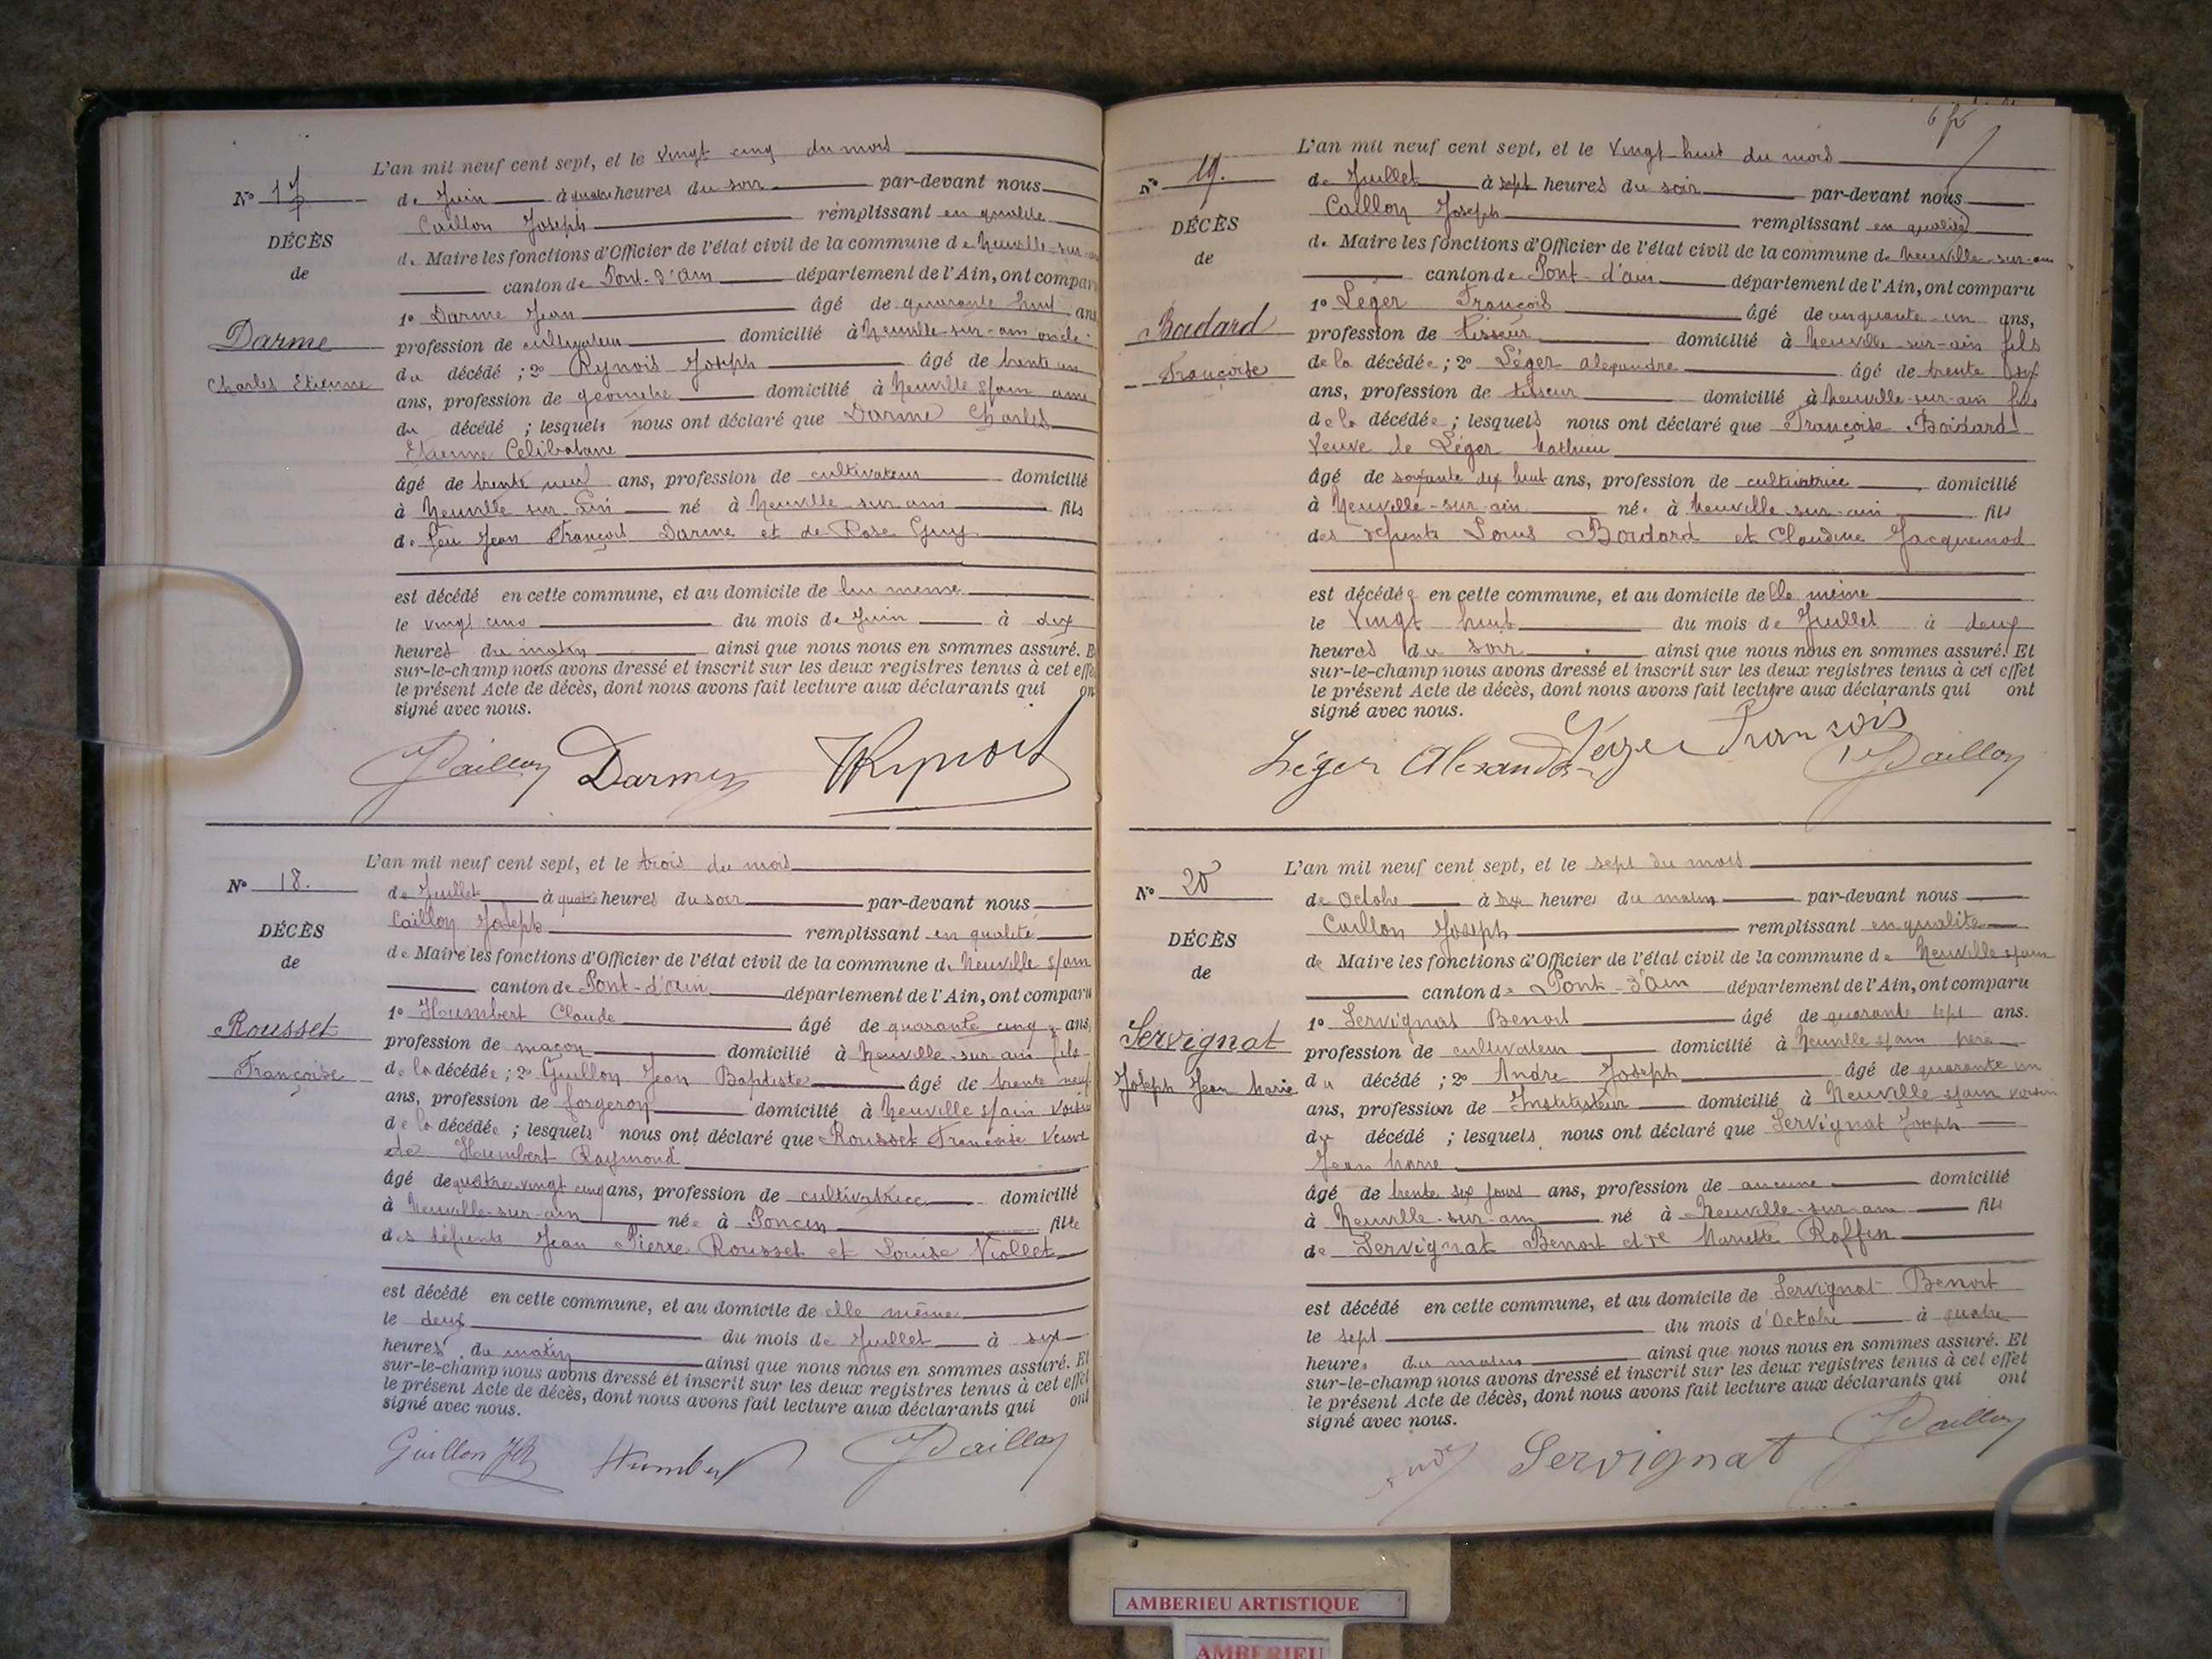 L'an mil neuf cent sept, et le vingt cinq du mois
N° 17
de Juin à quatre heures du soir par-devant nous
Caillon Joseph remplissant en qualité
DÉCÈS
de Maire les fonctions d'Officier de l'état civil de la commune de Neuville-sur-
de
canton de Pont-d'Ain département de l'Ain, ont compar
1° Darme Jean âgé de quarante huit ans
Darme
profession de cultivateur domicilié à Neuville-sur-ain oncle
du décédé ; 2° Rynois Joseph âgé de trente un
Charles Etienne
ans, profession de géomètre domicilié à Neuville s/ain ami
du décédé ; lesquels nous ont déclaré que Darme Charles
Etienne Celibataire
âgé de trente neuf ans, profession de cultivateur domicilié
à Neuville sur Ain né à Neuville sur ain fils
de feu Jean François Darme et de Rose Guy
est décédé en cette commune, et au domicile de lui meme
le vingt cinq du mois de Juin à dix
heures du matin ainsi que nous nous en sommes assuré. E
sur-le-champ nous avons dressé et inscrit sur les deux registres tenus à cet effe
le présent Acte de décès, dont nous avons fait lecture aux déclarants qui on
signé avec nous.
JCaillon Darme JRynois
L'an mil neuf cent sept, et le trois du mois
N° 18.
de Juillet à quatre heures du soir par-devant nous
DÉCÈS
Caillon Joseph remplissant en qualité
de
de Maire les fonctions d'Officier de l'état civil de la commune de Neuville s/ain
canton de Pont-d'ain département de l'Ain, ont comparu
1° Humbert Claude âgé de quarante cinq ans,
Rousset
profession de maçon domicilié à Neuville-sur-ain fils
Françoise
de la décédée ; 2° Guillon Jean Baptiste âgé de trente neuf
ans, profession de forgeron domicilié à Neuville s/ain voisin
de la décédée ; lesquels nous ont déclaré que Rousset Françoise veuve
de Humbert Raymond
âgé de quatre vingt cinq ans, profession de cultivatrice domicilié
à Neuville-sur-ain née à Poncin fille
des défunts Jean Pierre Rousset et Louise Viollet
est décédé en cette commune, et au domicile de elle même
le deux du mois de Juillet à six
heures du matin ainsi que nous nous en sommes assuré. Et
sur-le-champ nous avons dressé et inscrit sur les deux registres tenus à cet effet
le présent Acte de décès, dont nous avons fait lecture aux déclarants qui ont
signé avec nous.
Guillon JB Humbert JCaillon
L'an mil neuf cent sept, et le vingt-huit du mois
N° 19.
de Juillet à sept heures du soir par-devant nous
Caillon Joseph remplissant en qualité
DÉCÈS
de Maire les fonctions d'Officier de l'état civil de la commune de Neuville-sur-ain
de
canton de Pont-d'ain département de l'Ain, ont comparu
1° Léger François âgé de cinquante-un ans,
Boidard
profession de tisseur domicilié à Neuville-sur-ain fils
Françoise
de la décédée ; 2° Léger Alexandre âgé de trente
ans, profession de tisseur domicilié à Neuville-sur-ain fils
de la décédée ; lesquels nous ont déclaré que Françoise Boidard
Veuve de Léger Mathieu
âgé de soixante dix huit ans, profession de cultivatrice domicilié
à Neuville-sur-ain née à Neuville-sur-ain fils
des défunts Louis Boidard et Claudine Jacquemod
est décédée en cette commune, et au domicile de elle même
le Vingt huit du mois de Juillet à deux
heures du soir ainsi que nous nous en sommes assuré. Et
sur-le-champ nous avons dressé et inscrit sur les deux registres tenus à cet effet
le présent Acte de décès, dont nous avons fait lecture aux déclarants qui ont
signé avec nous.
Léger Alexandre Léger François JCaillon
L'an mil neuf cent sept, et le sept du mois
N° 20
de Octobre à dix heures du matin par-devant nous
Caillon Joseph remplissant en qualité
DÉCÈS
de Maire les fonctions d'Officier de l'état civil de la commune de Neuville s/ain
de
canton de Pont-d'Ain département de l'Ain, ont comparu
1° Servignat Benoit âgé de quarante sept ans.
Servignat
profession de cultivateur domicilié à Neuville s/ain père
Joseph Jean Marie
du décédé ; 2° André Joseph âgé de quarante un
ans, profession de Instituteur domicilié à Neuville s/ain voisin
du décédé ; lesquels nous ont déclaré que Servignat Joseph
Jean Marie
âgé de trente six jours ans, profession de aucune domicilié
à Neuville-sur-ain né à Neuville-sur-ain fils
de Servignat Benoit et de Mariette Roffin
est décédé en cette commune, et au domicile de Servignat Benoit
le sept du mois d'Octobre à quatre
heures du matin ainsi que nous nous en sommes assuré. Et
sur-le-champ nous avons dressé et inscrit sur les deux registres tenus à cet effet
le présent Acte de décès, dont nous avons fait lecture aux déclarants qui ont
signé avec nous.
Servignat JCaillon
AMBERIEU ARTISTIQUE
AMBERIEU